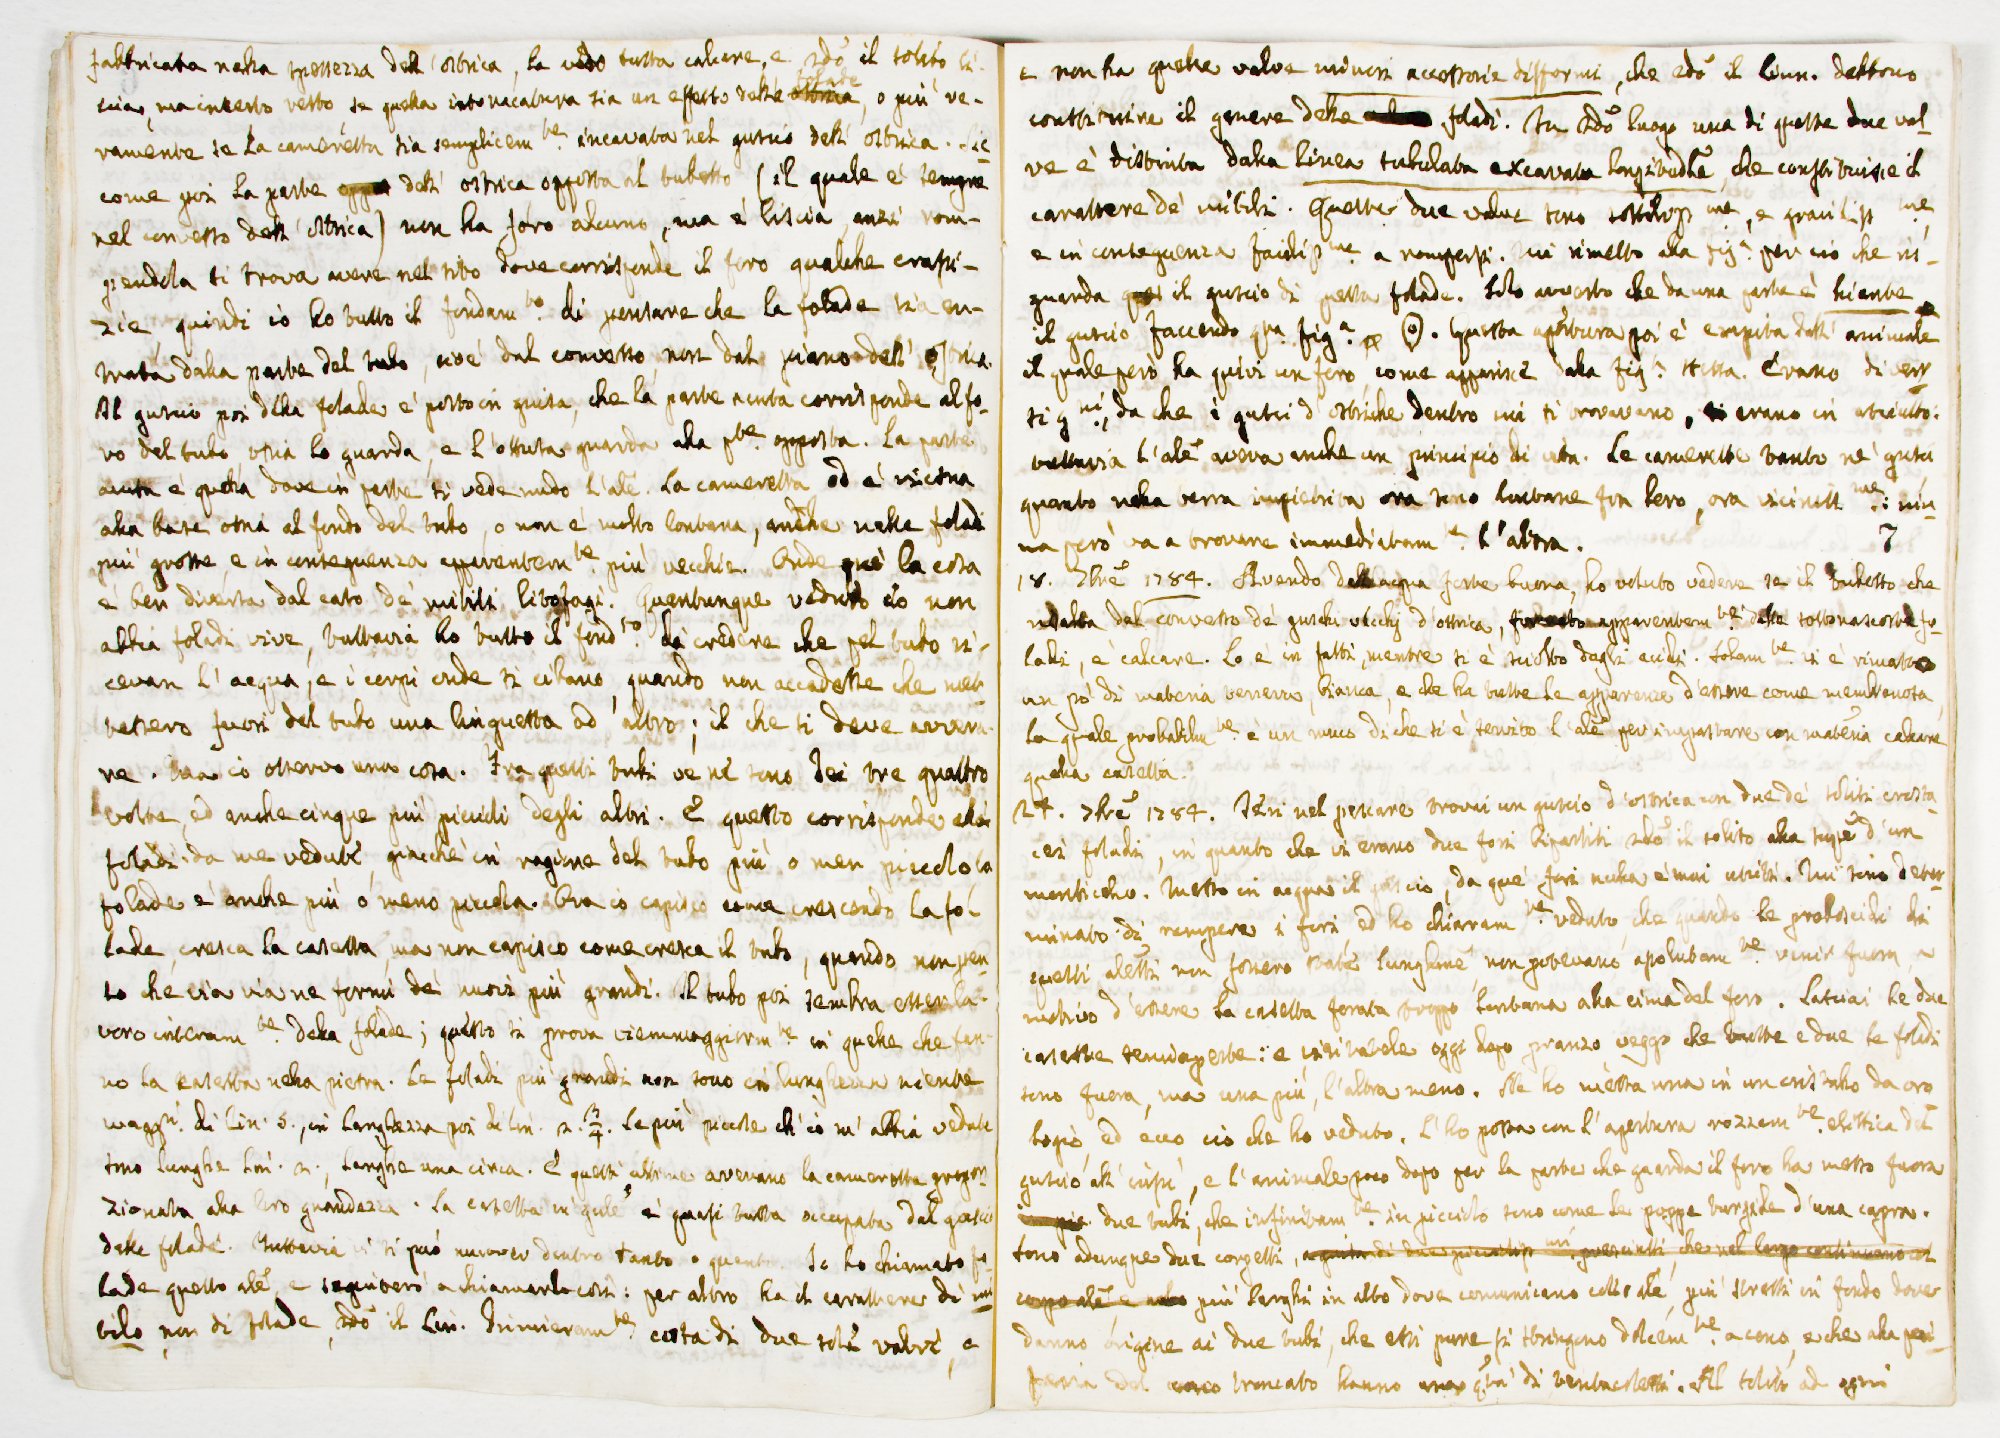 fabbricata nella spessezza dell'ostrica, la vedo tutta calcare, e 2do il solito li-
cia, ma incerto resto, se quella intonacatura sia un effetto delle folade, o più ve-
ramente se la cameretta sia semplicemte incavata nel guscio dell'ostrica. Sic
come poi la parte dell'ostrica opposta al tubetto (il quale è sempre
nel convesso dell'ostrica) non ha foro alcuno, ma è liscia, anzi rom-
pendola si trova avere nel sito dove corrisponde il foro qualche crassi-
zie, quindi io ho tutto il fondamto di pensare che la folade sia en-
trata dalla parte del tubo, cioè dal convesso, non dal piano dell'ostrica.
Il guscio poi della folade è posto in guisa, che la parte acuta corrisponde al fo-
ro del tubo ossia lo guarda, e l'ottusa guarda alla pte opposta. La parte
acuta è quella dove in parte si vede nudo l'ale. La cameretta od è vicina
alla base ossia al fondo del tubo, o non è molto lontana, anche nelle foladi
più grosse, e in conseguenza apparentemte più vecchie. Onde quì la cosa
è ben diversa dal caso de' mitili litofagi. Quantunque veduto io non
abbia foladi vive, tuttavia ho tutto il fondto di credere che pel tubo ri-
cevan l'acqua, e i corpi onde si cibano, quando non accadesse che met-
tessero fuori del tubo una linguetta od altro; il che si deve avvera-
re. Ma io osservo una cosa. Fra questi tubi ve ne sono dei tre quattro
volte, ed anche cinque più piccioli degli altri. E questo corrisponde alle
foladi da me vedute, giacchè in ragione del tubo più o men piccolo la
folade è anche più o meno piccola. Ora io capisco come crescendo la fo-
lade, cresca la casetta, ma non capisco come cresca il tubo, quando non pen
so che via via ne formi de' nuovi più grandi. Il tubo poi sembra esser la-
voro interamte della folade; questo si prova viemmaggiormte in quelle che fan-
no la casetta nella pietra. Le foladi più grandi non sono in lunghezza niente
maggri di lin. 5., in larghezza poi di lin. 2. 3/4. Le più piccole ch'io m'abbia vedute
sono lunghe lin. 2., larghe una circa. E questi ultime avevano la cameretta propor
zionata alla loro grandezza. La casetta in gnle è quasi tutta occupata dal guscio
delle foladi. Tuttavia vi si può muover dentro tanto o quanto. Io ho chiamato fo-
lade questo ale, e seguiterò a chiamarlo così: per altro ha il carattere di mi
tilo, non di folade, 2do il Lin. Primieramte costa di due sole valve, e
e non ha quelle valve minori accessorie difformi, che 2do il Linn. debbono
constituire il genere delle foladi. In 2do luogo una di queste due val
ve è distinta dalla linea subulata excavata longitudle, che constituisce il
carattere de' mitili. Queste due valve sono sottiliss me, e gracilis me,
e in conseguenza facilisme a rompersi. Mi rimetto alla figa per ciò che ri-
guarda il guscio di questa folade. Solo avverto che da una parte è hiante
il guscio facendo qa figa. Questa apertura poi è empita dall'animale
il quale però ha quivi un foro, come apparisce dalla figa stessa. Erano diversi
sig ni, da che i gusci d'ostriche dentro cui si trovavano, erano in asciutto:
tuttavia l'ale aveva anche un principio di vita. Le camerette tanto ne' gusci
quanto nella terra impietrita ora sono lontane fra loro, ora vicinissme: niu
na però va a trovare immediatamte l'altra. 7
18. 7bre 1784. Avendo dell'acqua forte buona, ho voluto vedere se il tubetto che
risalta dal convesso de' gusci vecchj d'ostrica, fo-
ladi, è calcare. Lo è in fatti, mentre si è sciolto degli acidi. Solamte vi è rimasto
un pò di materia tenera, bianca, e che ha tutte le apparenze d'essere come membranosa,
la quale probabilmte è un muco di che si è servito l'ale per impastare con materia calcare
quella casetta.
24. 7bre 1784. Ieri nel pescare trovai un guscio d'ostrica con due de' soliti crosta
cei foladi, in quanto che vi erano due fori bipartiti 2do il solito alla d'un
monticello. Messo in acqua il guscio, da que' fori nulla è mai uscito. Mi sono deter-
minato di rompere i fori ed ho chiaramte veduto, che quando le proboscidi di
questi aletti non fossero state lunghme, non potevano assolutamte venir fuora, a
motivo d'essere la casetta forata troppo lontana alla cima del foro. Lasciai le due
casette semiaperte: e visitatele oggi dopo pranzo veggo che tutte e due le foladi
sono fuora, ma una più, l'altra meno. Ne ho messa una in un cristallo da oro
logio, ed ecco ciò che ho veduto. L'ho posta con l'apertura rozzamte elittica del
guscio all'insù, e l'animale poco dopo per la parte che guarda il foro ha messo fuora
due tubi, che infinitamte in picciolo sono come le poppe turgide d'una capra.
Sono adunque due corpetti, a guisa di due piccioliss mi, che nel largo continuano col
corpo ale, e più larghi in alto dove comunicano coll'ale, più stretti in fondo dove
danno origine ai due tubi, che essi pure si stringono dolcemte a cono, e che alla peri
feria del cono troncato hanno una qtà di tentacoletti. Al solito ad ogni